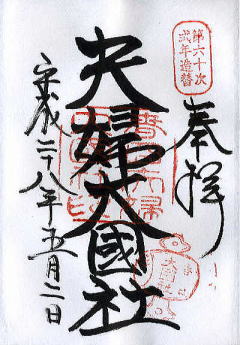 第六十次
式年造替
奉拝
夫婦大國社
平成二十八年五月二日